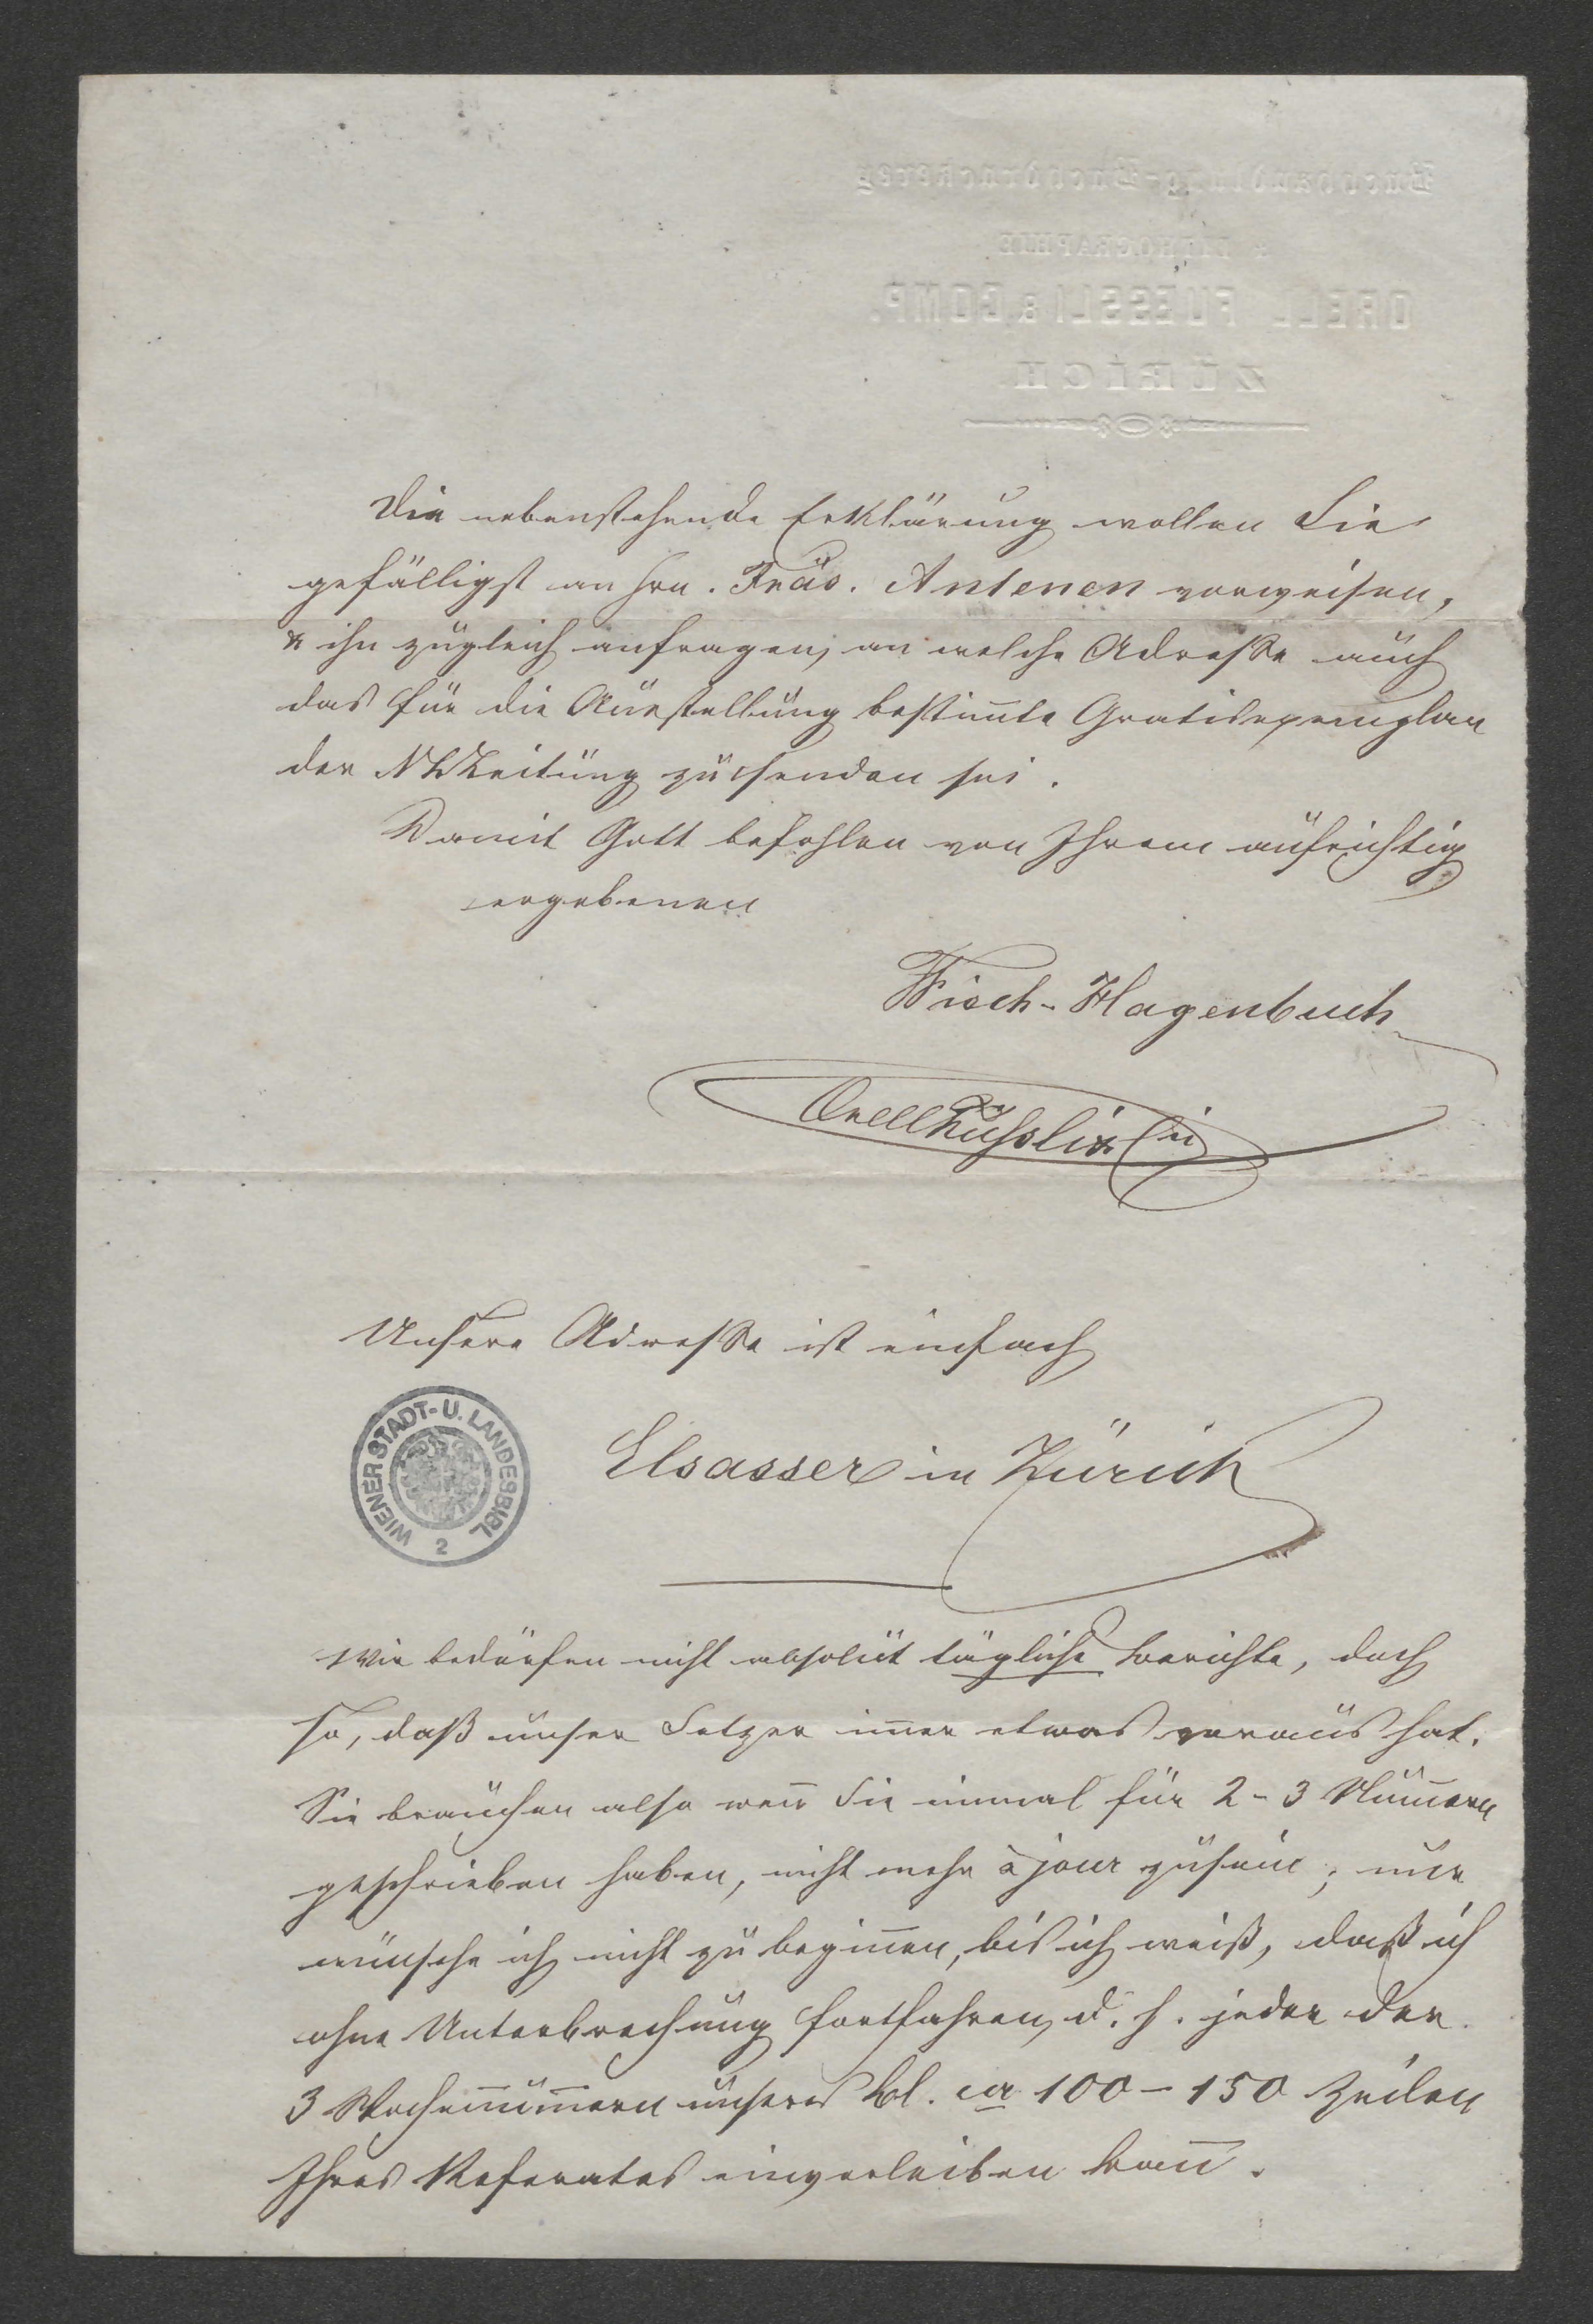 Buchhandlung-Buchdruckerey
& LITHOGRAPHIE
ORELL FUESSLI & COMP.
ZÜRICH
Die nebenstehende Erklärung wollen Sie
gefälligst an Hrn. Präs. Antenen vorweisen,
& ihn zugleich anfragen, an welche Adresse auch
das für die Ausstellung bestim̄te Gratisexemplar
der Zeitung zu senden sei.
Damit Gott befohlen von Ihrem aufrichtig
ergebenen
Hagenbuch
Orell Füssli & Cie
Unsere Adresse ist einfach
WIENER STADT- U. LANDESBIBL 2
Elsasser in Zürich
Wir bedürfen nicht absolut tägliche Berichte, doch
so, daß unser Setzer im̄er etwas voraus hat.
Sie brauchen also wen̄ Sie einmal für 2-3 Num̄ern
geschrieben haben, nicht mehr à jour zu sein; nur
wünsche ich nicht zu begin̄en, bis ich weiß, daß ich
ohne Unterbrechung fortfahren, d. h. jeder der
3 Wochen̄um̄ern unseres Bl. ca 100-150 Zeilen
Ihres Referates einverleiben kan̄.